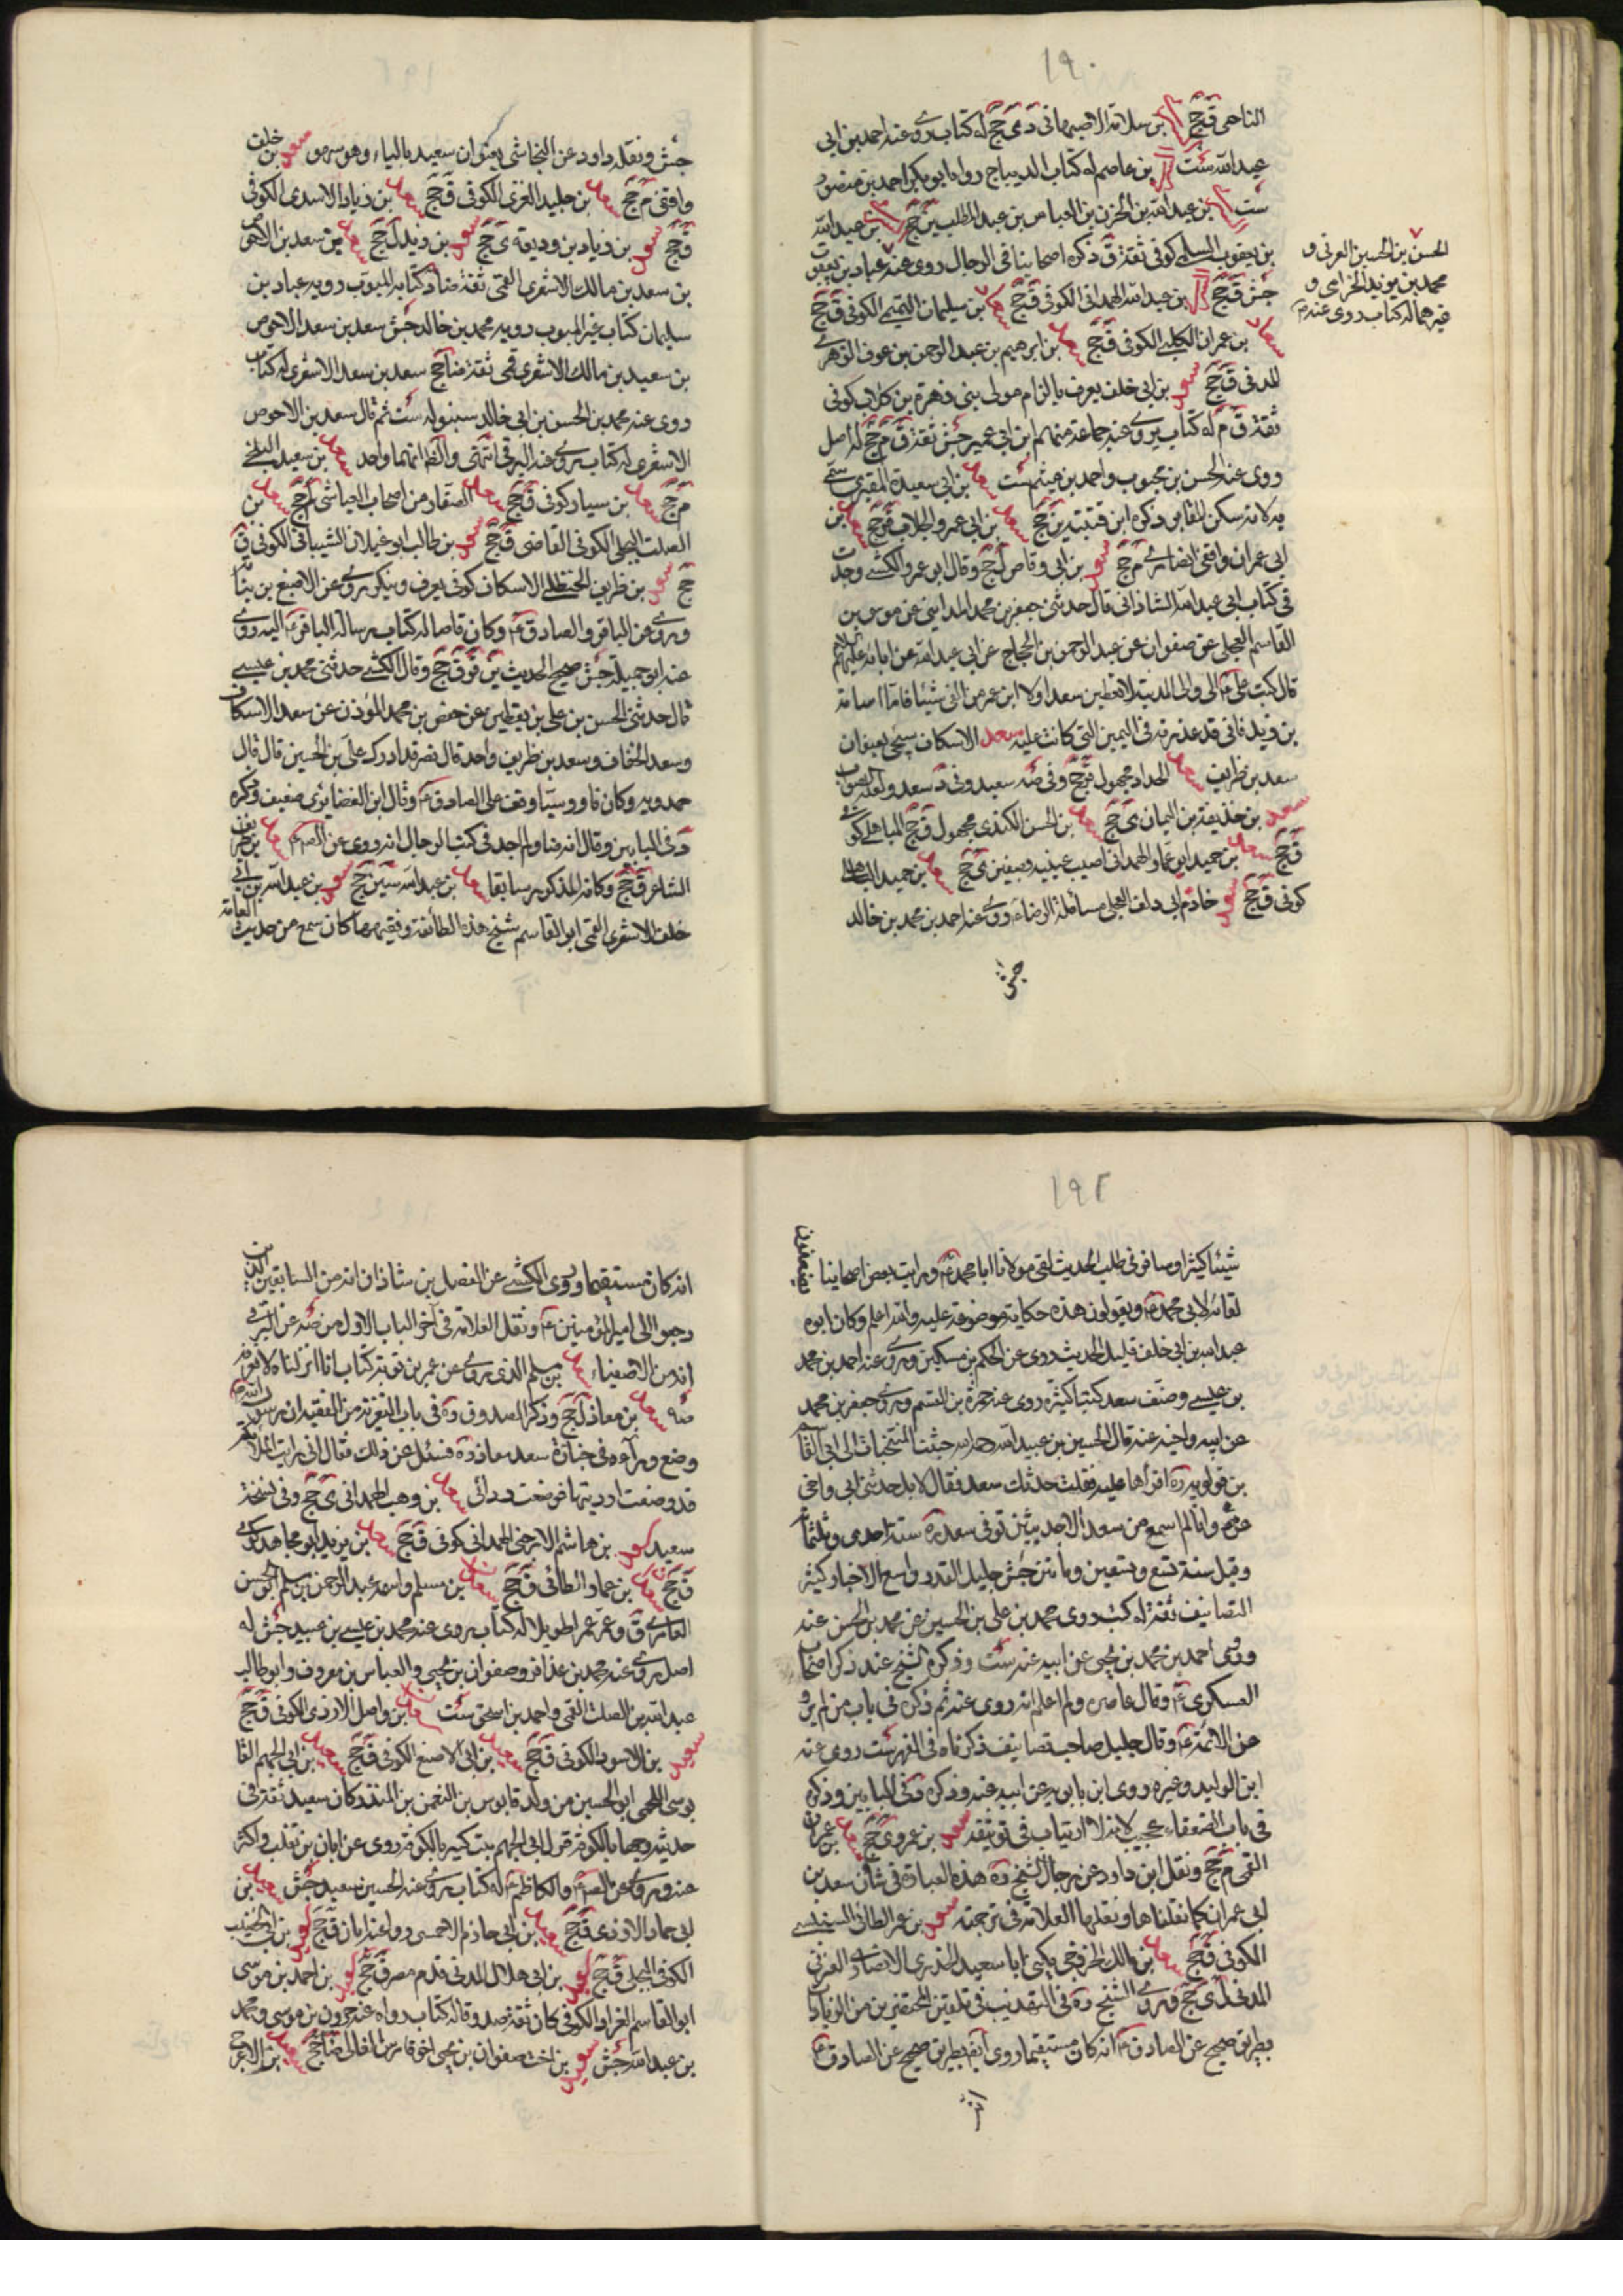 ١٩٠
الناحى ق جخ بن سلامة الاصبهانى دى جخ له كتاب روى عنه احمد بن ابى
عبد الله ست بن عاصم له كتاب الديباج رواه ابو بكر احمد بن منصور
ست بن عبد الله بن الحزن بن العباس بن عبد المطلب ين جخ بن عبد الله
بن يعقوب السلمى كوفى ثقة ق ذكره اصحابنا فى الرجال روى عنه عباد بن يعقوب
جش ق جخ بن عبد الله الهمدانى الكوفى ق جخ سعد بن سليمان التميمى الكوفى ق جخ
سعاد بن عمران الكلبى الكوفى ق جخ سعد بن ابرهيم بن عبد الرحمن بن عوف الزهرى
المدنى ق جخ سعد بن ابى خلف يعرف بالزام مولى بنى زهرة بن كلاب كوفى
ثقة ق م له كتاب يرويه عنه جماعة منهم ابن ابى عمير جش ثقة ق م جخ له اصل
روى عنه الحسن بن محبوب واحمد بن ميثم ست سعد بن ابى سعيد المقبرى سمى
به لانه سكن المقابر ذكره ابن قتيبة ين جخ سعد بن ابى عمرو الجلاب ق جخ سعد بن
ابى عمران واقفى انصارى م جخ سعد بن ابى وقاص ل جخ وقال ابو عمرو الكشى وجدت
فى كتاب ابى عبد الله الشاذانى قال حدثنى جعفر بن محمد المداينى عن موسى بن
القاسم العجلى عن صفوان عن عبد الرحمن بن الحجاج عن ابى عبد الله عن ابائه عليهم السلام
قال كتب على ع الى والى المدينة لا تعطين سعدا ولا ابن عمر من الفئ شيئا فاما اسامة
بن زيد فانى قد عذرته فى اليمين التى كانت عليه سعد الاسكاف سيجئ بعنوان
سعد بن طريف سعد الحداد مجهول ق جخ وفى صه سعيد وفى د سعد ولعله الصواب
سعد بن حذيفة بن اليمان ى جخ سعد بن الحسن الكندى مجهول ق جخ
ق جخ سعد بن حميد ابو عمار الهمدانى اصيب عينيه بصفين ى جخ سعد بن حميد
كوفى ق جخ سعد خادم ابى دلف العجلى مسائله الرضا ع روى عنه احمد بن محمد بن خالد
جش
الحسن بن الحسين العرنى و
محمد بن يزيد الخزامى و
غيرهما له كتاب روى عنه م
جش ونقله داود عن النجاشى بعنوان سعيد بالياء وهو سهو سعد بن خلف
واقفى م جخ سعد بن خليد العنزى الكوفى ق جخ سعد بن زياد الاسدى الكوفى
ق جخ سعد بن زياد بن وديعة ى جخ سعد بن زيد ل جخ سعد بن سعد بن الاحوص
بن سعد بن مالك الاشعرى القمى ثقة ضا د كتابه المبوب رويه عباد بن
سليمان كتاب غير المبوب رويه محمد بن خالد جش سعد بن سعد الاحوص
بن سعيد بن مالك الاشعرى قمى ثقة ضا جخ سعد بن سعد الاشعرى له كتاب
روى عنه محمد بن الحسن بن ابى خالد سنبوله ست ثم قال سعد بن الاحوص
الاشعرى له كتاب روى عنه البرقى انتهى والظ انهما واحد سعد بن سعيد البلخى
م جخ سعد بن سيار كوفى ق جخ سعد الصفار من اصحاب العياشى لم جخ سعد بن
الصلت البجلى الكوفى القاضى ق جخ سعد بن طالب ابو غيلان الشيبانى الكوفى ق
جخ سعد بن طريف الحنظلى الاسكاف كوفى يعرف وينكر روى عن الاصبغ بن نباتة
وروى عن الباقر والصادق ع وكان قاصا له كتاب رسالة الباقر ع اليه روى
عنه ابو جميلة جش صحيح الحديث ين قر ق جخ وقال الكشى حدثنى محمد بن عيسى
قال حدثنى الحسن بن على بن يقطين عن حفص بن محمد المؤذن عن سعد الاسكاف
وسعد الخفاف وسعد بن طريف واحد قال نصر قد ادرك على بن الحسين قال قال
حمدويه وكان ناووسيا وقف على الصادق ع وقال ابن الغضائرى ضعيف وذكره
د فى البابين وقال انه ضا ولم اجد فى كتب الرجال انه روى عن الص ع سعد بن طريف
الشاعر ق جخ وكانه المذكور سابقا سعد بن عبد الله سين جخ سعد بن عبد الله بن ابى
خلف الاشعرى القمى ابو القاسم شيخ هذه الطائفة وفقيهها كان سمع من حديث العامة
١٩٢
شيئا كثيرا وسافر فى طلب الحديث لقى مولانا ابا محمد ع ورايت بعض اصحابنا يضعفون
لقائه لابى محمد ع ويقولون هذه حكاية موضوعة عليه والله اعلم وكان ابوه
عبد الله بن ابى خلف قليل الحديث روى عن الحكم بن مسكين وروى عنه احمد بن محمد
بن عيسى وصنف سعد كتبا كثيرة روى عنه حمزة بن القسم وروى جعفر بن محمد
عن ابيه واخيه عنه قال الحسين بن عبيد الله رحمه الله جئت المنتخبات الى ابى القاسم
بن قولويه ره اقرأها عليه فقلت حدثك سعد فقال لا بل حدثنى ابى واخى
عنه وانا لم اسمع من سعد الا حديثين توفى سعد ره سنة احدى وثلثمائة
وقيل سنة تسع وتسعين ومائتين جش جليل القدر واسع الاخبار كثير
التصانيف ثقة له كتب روى محمد بن على بن الحسين عن محمد بن الحسن عنه
وروى احمد بن محمد بن يحيى عن ابيه عنه ست وذكره الشيخ عند ذكر اصحاب
العسكرى ع وقال عاصره ولم اعلم انه روى عنه ثم ذكره فى باب من لم يرو
عن الائمة ع وقال جليل صاحب تصانيف ذكرناه فى الفهرست روى عنه
ابن الوليد وغيره روى ابن بابويه عن ابيه عنه وذكره د فى البابين وذكره
فى باب الضعفاء عجيب لانه لا ارتياب فى توثيقه سعد بن عمر و ى جخ سعد بن عمران
القمى م جخ ونقل ابن داود عن رجال الشيخ ره هذه العبارة فى شان سعد بن
ابى عمران كما نقلناها ونقلها العلامة فى ترجمته سعد بن عمر الطائى السنبسى
الكوفى ق جخ سعد بن مالك الخزرجى يكنى ابا سعيد الخدرى الانصارى العرنى
المدنى ل ى جخ وروى الشيخ ره فى التهذيب فى تلقين المحتضرين من الزيادات
بطريق صحيح عن الصادق ع انه كان مستقيما روى ايضا بطريق صحيح عن الصادق ع
انه كان مستقيما وروى الكشى عن الفضل بن شاذان انه من السابقين الذين
رجعوا الى امير المؤمنين ع ونقل العلامة فى آخر الباب الاول من صه عن البرقى
انه من الاصفياء سعد بن مسلم الذى روى عن عمر بن توبة كتاب انا انزلناه لا يعرف
صه سعد بن معاذ ل جخ وذكر الصدوق ره فى باب التعزية من الفقيه ان رسول الله ص
وضع ردآءه فى جنازة سعد بن معاذ ره فسئل عن ذلك فقال انى رايت الملائكة
قد وضعت ارديتها فوضعت ردائى سعد بن وهب الهمدانى ى جخ وفى نسخة
سعيد سعد بن هاشم الارحبى الهمدانى كوفى ق جخ سعد بن يزيد ابو مجاهد
ق جخ بن عمار الطائى ق جخ سعدان بن مسلم واسمه عبد الرحمن بن مسلم ابو الحسن
العامرى ق وعمر عمرا طويلا له كتاب يروى عنه محمد بن عيسى بن عبيد جش له
اصل روى عنه محمد بن عذافر وصفوان بن يحيى والعباس بن معروف وابو طالب
عبد الله بن الصلت القمى واحمد بن اسحق ست بن واصل الازدى الكوفى ق جخ
سعيد بن الاسود الكوفى ق جخ سعيد بن ابى الاصبع الكوفى ق جخ سعيد بن ابى الجهم القا
بوسى اللخمى ابو الحسين من ولد قابوس بن النعمن بن المنذر كان سعيد ثقة فى
حديثه وجها بالكوفة وال ابى الجهم بيت كبير بالكوفة روى عن ابان بن تغلب واكثر
عنه وروى عن الص ع والكاظم ع له كتاب روى عنه الحسين بن سعيد جش سعيد بن
ابى حماد الازدى ق جخ سعيد بن ابى حازم الاحمسى روى عنه ابان ق جخ سعيد بن ابى الخضيب
الكوفى البجلى ق جخ سعيد بن ابى هلال المدنى قدم مصر ق جخ سعيد بن احمد بن موسى
ابو القاسم الغراد الكوفى كان ثقة صدوقا له كتاب رواه عنه هرون بن موسى ومحمد
بن عبد الله جش سعيد بن اخت صفوان بن يحيى اخو فارس الغالى ضا جخ سعيد بن الاعرج